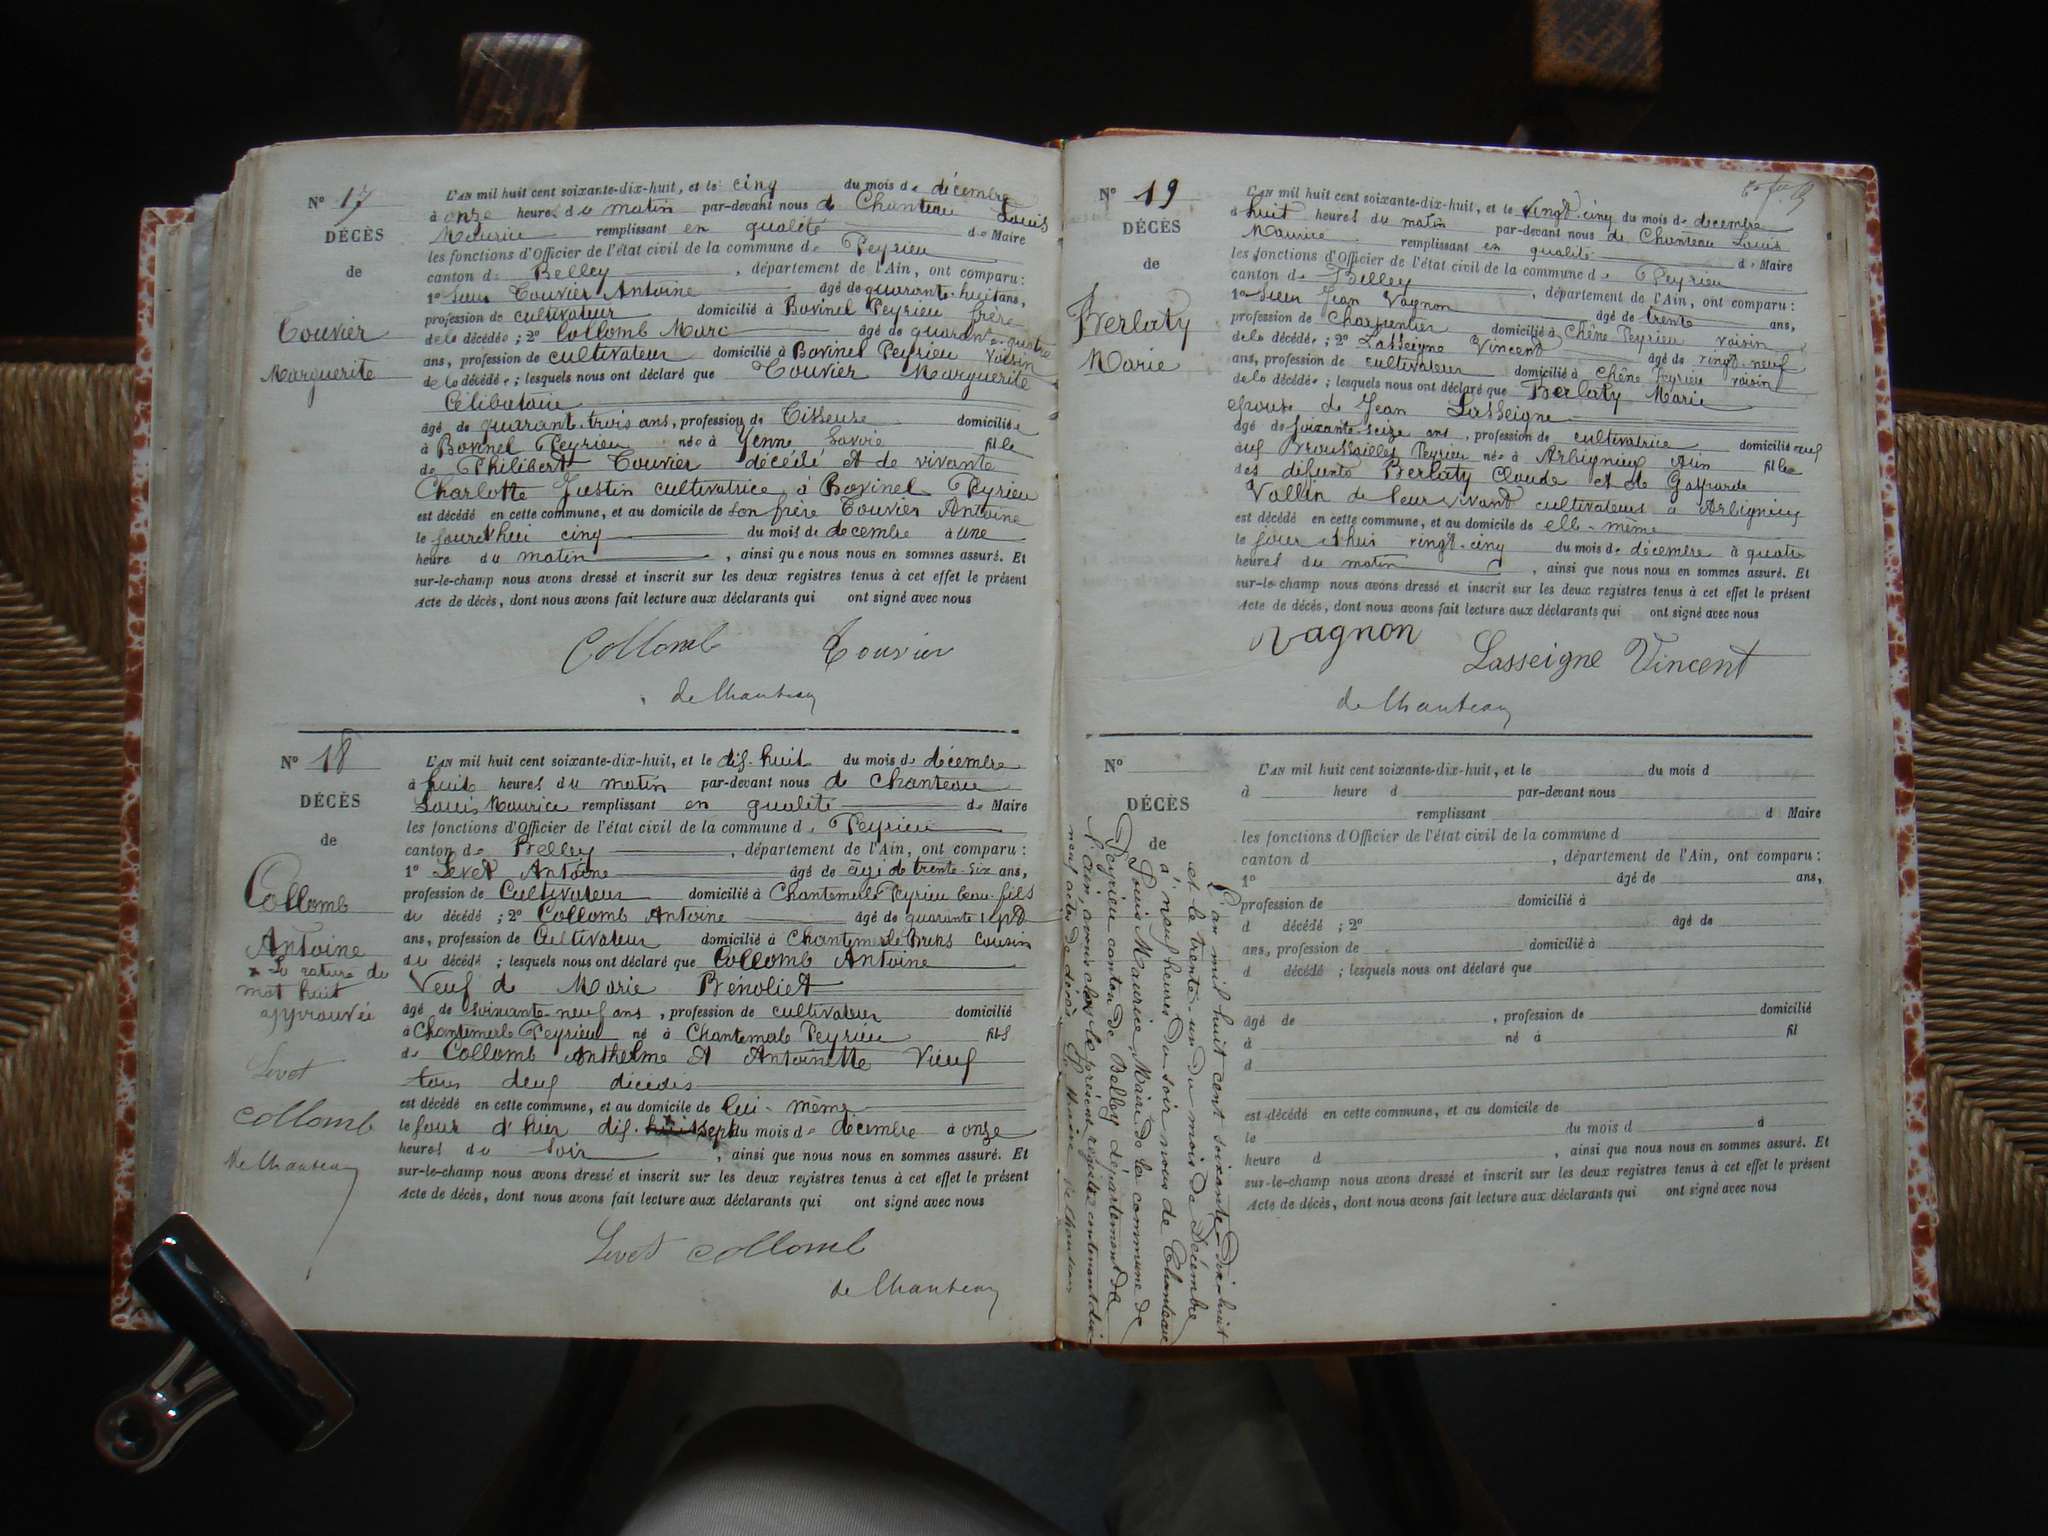 N° 17
DÉCÈS
de
Touvier
Marguerite
L'AN mil huit cent soixante-dix-huit, et le cinq du mois de décembre
à onze heures du matin par-devant nous de Chanteau Louis
Maurice remplissant en qualité de Maire
les fonctions d'Officier de l'état civil de la commune de Peyrieu
canton de Belley, département de l'Ain, ont comparu:
1° Sieur Touvier Antoine âgé de quarante-huit ans,
profession de cultivateur domicilié à Bovinel Peyrieu frère
de la décédée; 2° Collomb Marc âgé de quarante-quatre
ans, profession de cultivateur domicilié à Bovinel Peyrieu voisin
de la décédée; lesquels nous ont déclaré que Touvier Marguerite
Célibataire
âgé de quarante-trois ans, profession de Tisseuse domiciliée
à Bovinel Peyrieu née à Yenne Savoie fille
de Philibert Touvier décédé et de vivante
Charlotte Justin cultivatrice à Bovinel Peyrieu
est décédé en cette commune, et au domicile de son frère Touvier Antoine
le jourd'hui cinq du mois de décembre à une
heure du matin, ainsi que nous nous en sommes assuré. Et
sur-le-champ nous avons dressé et inscrit sur les deux registres tenus à cet effet le présent
Acte de décès, dont nous avons fait lecture aux déclarants qui ont signé avec nous
Collomb Touvier
de Chanteau
N° 18
DÉCÈS
de
Collomb
Antoine
La rature du
mot huit
approuvée
Levet
Collomb
de Chanteau
L'AN mil huit cent soixante-dix-huit, et le dix-huit du mois de décembre
à huit heures du matin par-devant nous de Chanteau
Louis Maurice remplissant en qualité de Maire
les fonctions d'Officier de l'état civil de la commune de Peyrieu
canton de Belley, département de l'Ain, ont comparu:
1° Levet Antoine âgé de âgé de trente-six ans,
profession de Cultivateur domicilié à Chantemerle Peyrieu beau-fils
du décédé; 2° Collomb Antoine âgé de quarante sept
ans, profession de Cultivateur domicilié à Chantemerle Brens cousin
du décédé; lesquels nous ont déclaré que Collomb Antoine
Veuf de Marie Benoliet
âgé de soixante-neuf ans, profession de cultivateur domicilié
à Chantemerle Peyrieu né à Chantemerle Peyrieu fils
de Collomb Anthelme et Antoinette Vieuf
tous deux décédés
est décédé en cette commune, et au domicile de lui-même
le jour d'hier dix-huit sept du mois de décembre à onze
heures du soir, ainsi que nous nous en sommes assuré. Et
sur-le-champ nous avons dressé et inscrit sur les deux registres tenus à cet effet le présent
Acte de décès, dont nous avons fait lecture aux déclarants qui ont signé avec nous
Levet Collomb
de Chanteau
N° 19
DÉCÈS
de
Berlaty
Marie
L'AN mil huit cent soixante-dix-huit, et le vingt-cinq du mois de décembre
à huit heures du matin par-devant nous de Chanteau Louis
Maurice remplissant en qualité de Maire
les fonctions d'Officier de l'état civil de la commune de Peyrieu
canton de Belley, département de l'Ain, ont comparu:
1° Sieur Jean Vagnon âgé de trente ans,
profession de Charpentier domicilié à Chêne Peyrieu voisin
de la décédée; 2° Lasseigne Vincent âgé de vingt-neuf
ans, profession de cultivateur domicilié à Chêne Peyrieu voisin
de la décédée; lesquels nous ont déclaré que Berlaty Marie
épouse de Jean Lasseigne
âgé de soixante-seize ans, profession de cultivatrice domiciliée
aux Broussailles Peyrieu née à Arbignieu Ain fille
des défunts Berlaty Claude et de Gasparde
Vallin de leur vivant cultivateurs à Arbignieu
est décédé en cette commune, et au domicile de elle-même
le jourd'hui vingt-cinq du mois de décembre à quatre
heures du matin, ainsi que nous nous en sommes assuré. Et
sur-le-champ nous avons dressé et inscrit sur les deux registres tenus à cet effet le présent
Acte de décès, dont nous avons fait lecture aux déclarants qui ont signé avec nous
Vagnon Lasseigne Vincent
de Chanteau
N°
DÉCÈS
de
L'an mil huit cent soixante Dix-huit
et le trente-un du mois de Décembre
à neuf heures du soir nous de Chanteau
Louis Maurice, Maire de la commune de
Peyrieu canton de Belley département de
l'Ain, avons clos le présent registre contenant dix-
neuf actes de décès. Le Maire de Chanteau
L'AN mil huit cent soixante-dix-huit, et le du mois d
à heure d par-devant nous
remplissant d Maire
les fonctions d'Officier de l'état civil de la commune d
canton d, département de l'Ain, ont comparu:
1° âgé de ans,
profession de domicilié à
d décédé; 2° âgé de
ans, profession de domicilié à
d décédé; lesquels nous ont déclaré que
âgé de, profession de domicilié
à né à fil
d
est décédé en cette commune, et au domicile de
le du mois d à
heure d, ainsi que nous nous en sommes assuré. Et
sur-le-champ nous avons dressé et inscrit sur les deux registres tenus à cet effet le présent
Acte de décès, dont nous avons fait lecture aux déclarants qui ont signé avec nous